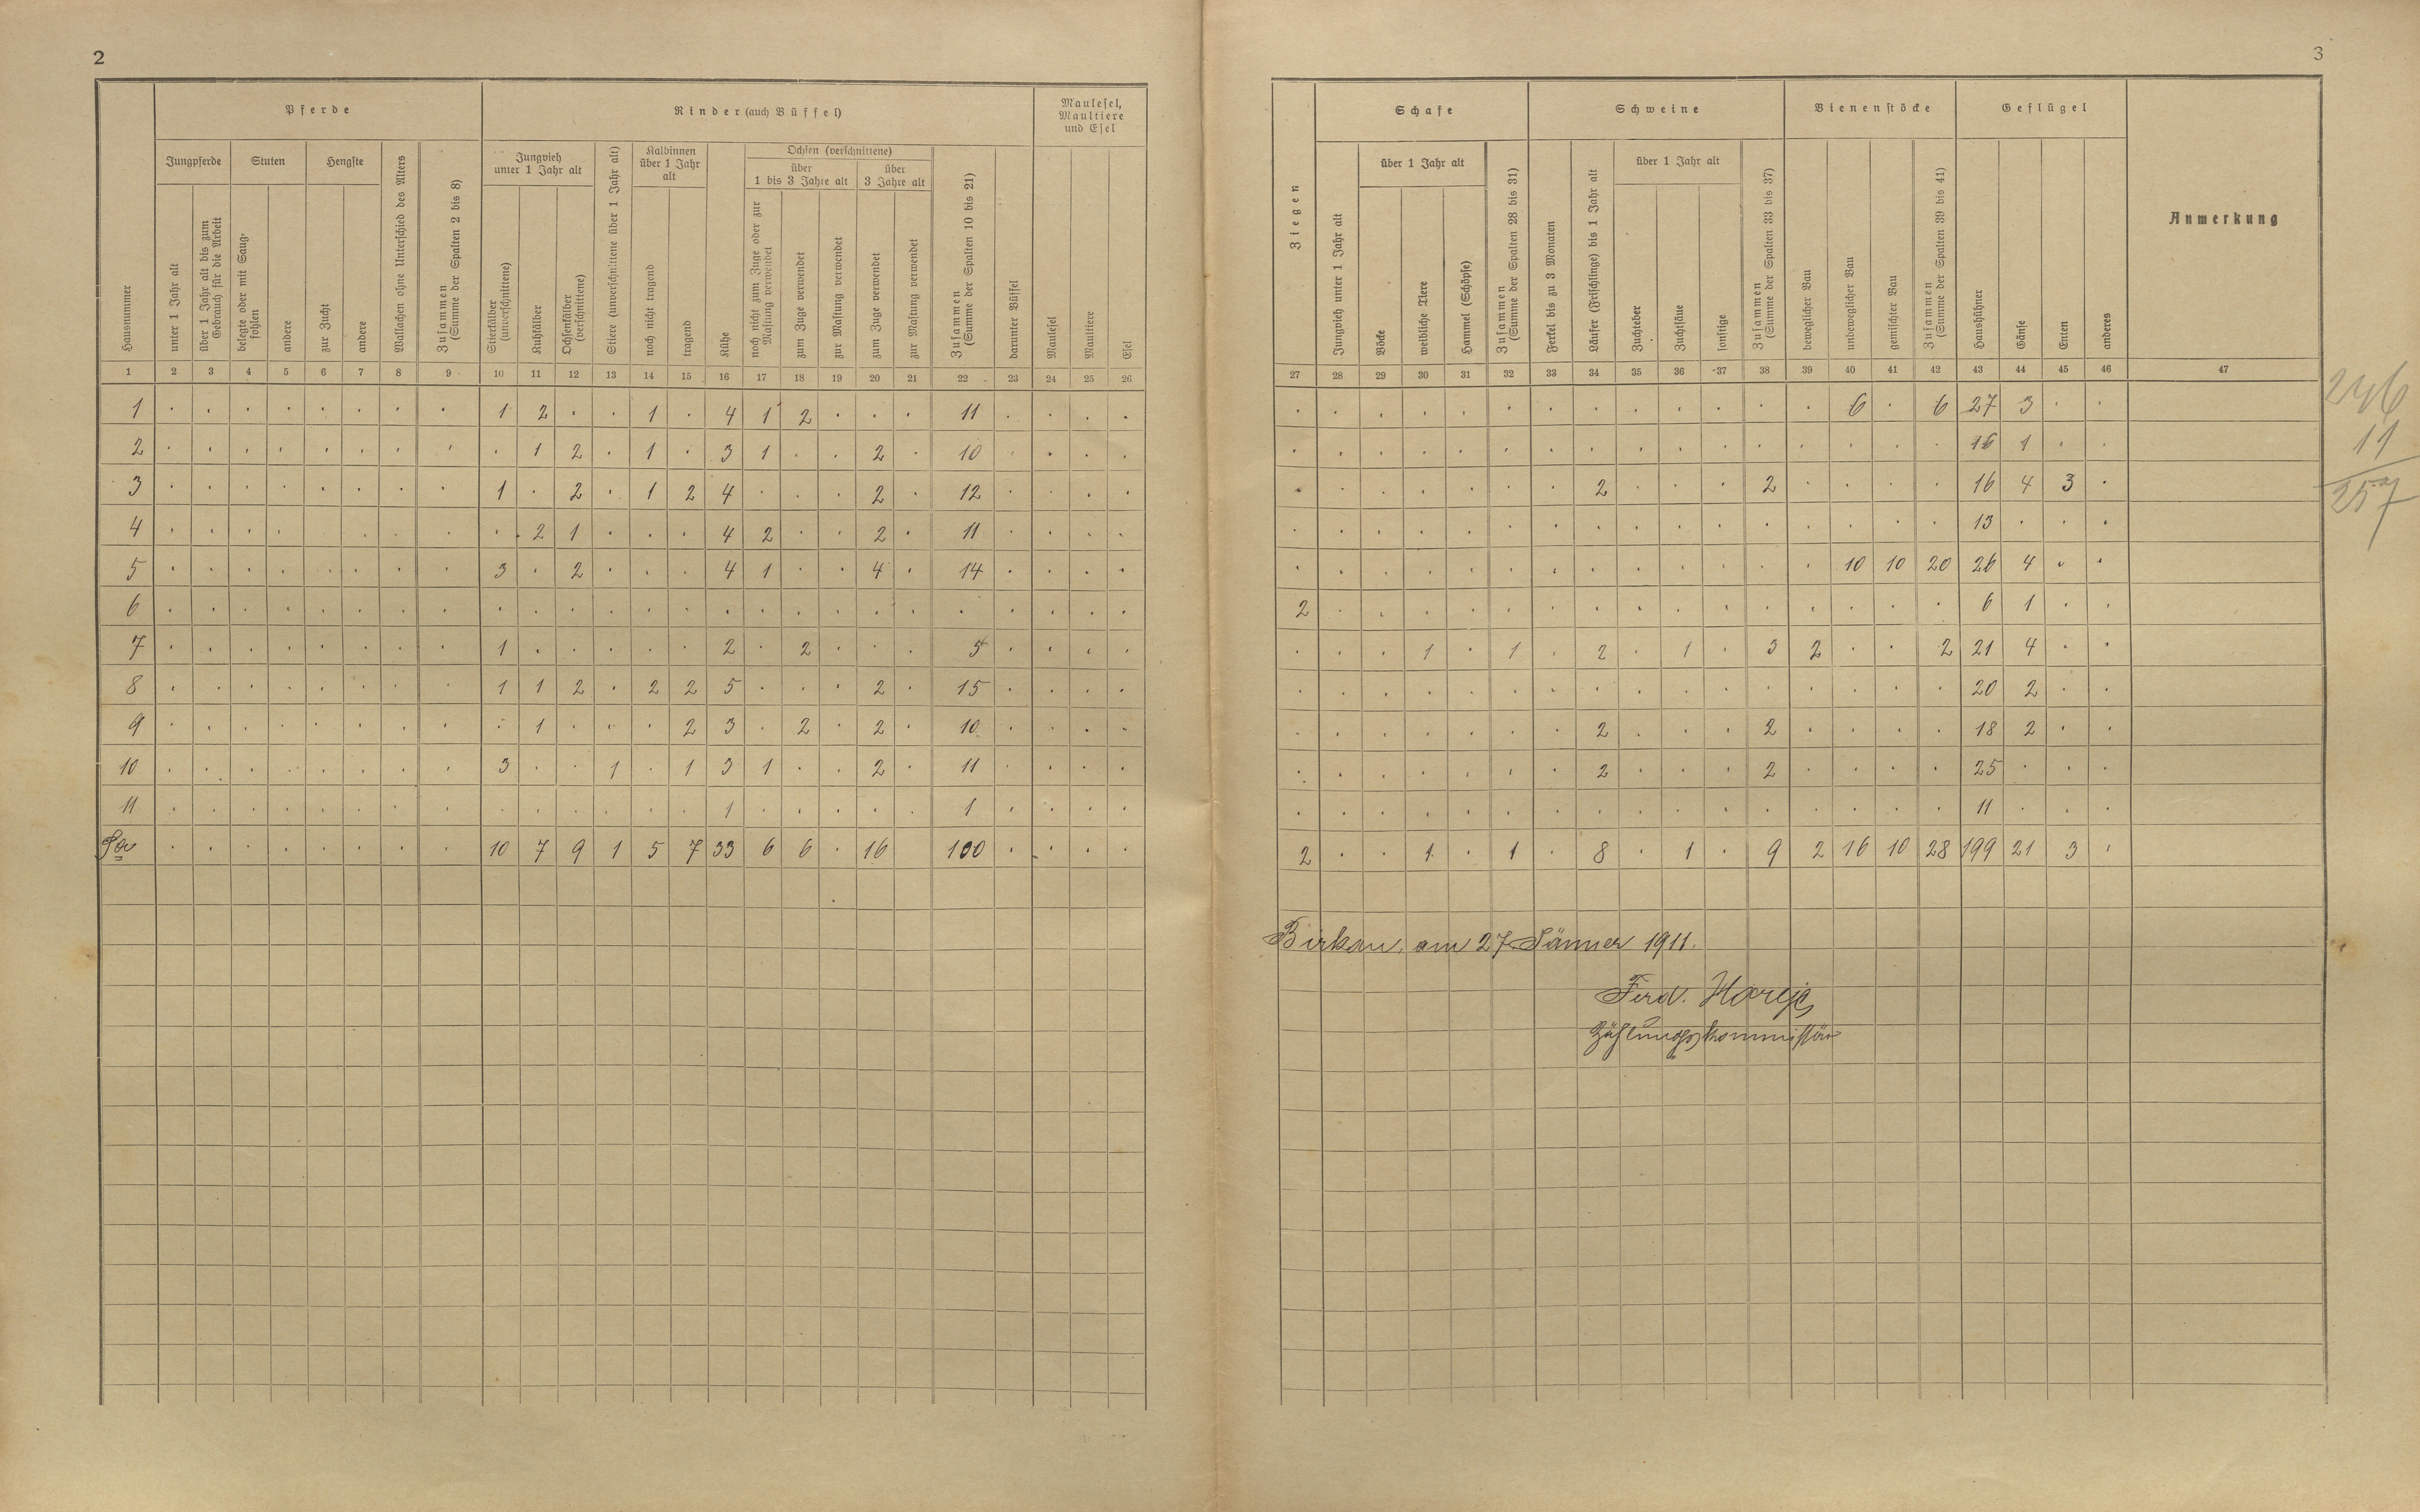 2
Pferde
Rinder (auch Büffel)
Maulesel,
Maultiere
und Esel
Jungpferde
Stuten
Hengste
Jungvieh
unter 1 Jahr alt
Kalbinnen
über 1 Jahr
alt
Ochsen (verschnittene)
über
1 bis 3 Jahre alt
über
3 Jahre alt
Hausnummer
unter 1 Jahr alt
über 1 Jahr alt bis zum
Gebrauch für die Arbeit
belegte oder mit Saug-
fohlen
andere
zur Zucht
andere
Wallachen ohne Unterschied des Alters
Zusammen
(Summe der Spalten 2 bis 8)
Stierkälber
(unverschnittene)
Kuhkälber
Ochsenkälber
(verschnittene)
Stiere (unverschnittene über 1 Jahr alt)
noch nicht tragend
tragend
Kühe
noch nicht zum Zuge oder zur
Mastung verwendet
zum Zuge verwendet
zur Mastung verwendet
zum Zuge verwendet
zur Mastung verwendet
Zusammen
(Summe der Spalten 10 bis 21)
darunter Büffel
Maulesel
Maultiere
Esel
1 2 3 4 5 6 7 8 9 10 11 12 13 14 15 16 17 18 19 20 21 22 23 24 25 26
1 . . . . . . . . 1 2 . . 1 . 4 1 2 . . . 11 . . . .
2 . . . . . . . . . 1 2 . 1 . 3 1 . . 2 . 10 . . . .
3 . . . . . . . . 1 . 2 . 1 2 4 . . . 2 . 12 . . . .
4 . . . . . . . . . 2 1 . . . 4 2 . . 2 . 11 . . . .
5 . . . . . . . . 3 . 2 . . . 4 1 . . 4 . 14 . . . .
6 . . . . . . . . . . . . . . . . . . . . . . . . .
7 . . . . . . . . 1 . . . . . 2 . 2 . . . 5 . . . .
8 . . . . . . . . 1 1 2 . 2 2 5 . . . 2 . 15 . . . .
9 . . . . . . . . . 1 . . . 2 3 . 2 . 2 . 10 . . . .
10 . . . . . . . . 3 . . 1 . 1 3 1 . . 2 . 11 . . . .
11 . . . . . . . . . . . . . . 1 . . . . . 1 . . . .
. . . . . . . . 10 7 9 1 5 7 33 6 6 . 16 100 . . . .
3
Ziegen
Schafe
Schweine
Bienenstöcke
Geflügel
Anmerkung
über 1 Jahr alt
über 1 Jahr alt
Jungvieh unter 1 Jahr alt
Böcke
weibliche Tiere
Hammel (Schöpse)
Zusammen
(Summe der Spalten 28 bis 31)
Ferkel bis zu 3 Monaten
Läufer (Frischlinge) bis 1 Jahr alt
Zuchteber
Zuchtsäue
sonstige
Zusammen
(Summe der Spalten 33 bis 37)
beweglicher Bau
unbeweglicher Bau
gemischter Bau
Zusammen
(Summe der Spalten 39 bis 41)
Haushühner
Gänse
Enten
anderes
27 28 29 30 31 32 33 34 35 36 37 38 39 40 41 42 43 44 45 46 47
. . . . . . . . . . . . . 6 . 6 27 3 . .
. . . . . . . . . . . . . . . . 16 1 . .
. . . . . . . 2 . . . 2 . . . . 16 4 3 .
. . . . . . . . . . . . . . . . 13 . . .
. . . . . . . . . . . . . 10 10 20 26 4 . .
2 . . . . . . . . . . . . . . . 6 1 . .
. . . 1 . 1 . 2 . 1 . 3 2 . . 2 21 4 . .
. . . . . . . . . . . . . . . . 20 2 . .
. . . . . . . 2 . . . 2 . . . . 18 2 . .
. . . . . . . 2 . . . 2 . . . . 25 . . .
. . . . . . . . . . . . . . . . 11 . . .
2 . . 1 . 1 . 8 . 1 . 9 2 16 10 28 199 21 3 .
246
11
257
Birkau, am 27. Jänner 1911.
Ferd.
Zählungskommissär